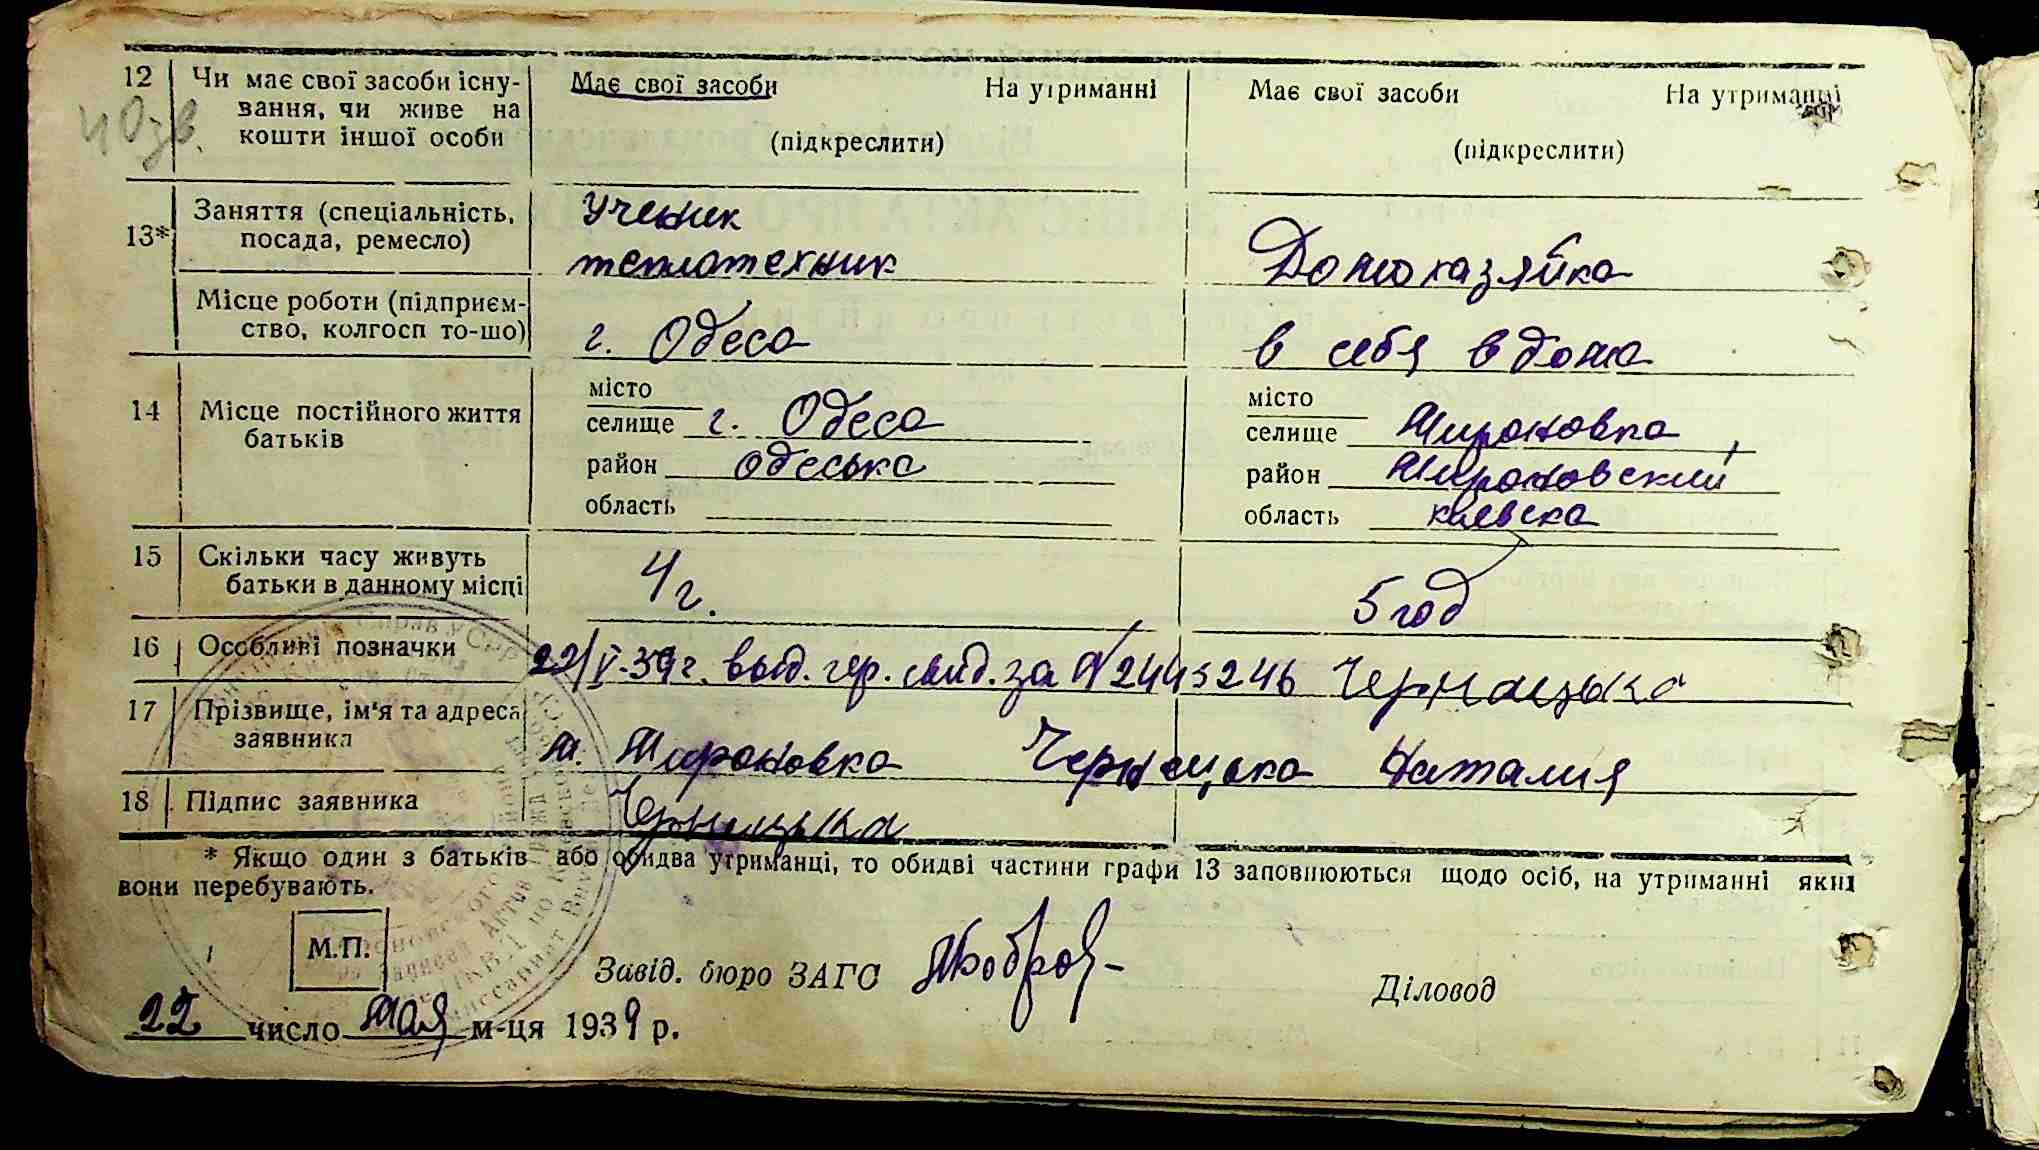 12 Чи має свої засоби існу- Має свої засоби На утриманні Має свої засоби На утриманні
вання, чи живе на
кошти іншої особи (підкреслити) (підкреслити)
13* Заняття (спеціальність, Ученик
посада, ремесло) теплотехник Домохазяйка
Місце роботи (підприєм-
ство, колгосп то-що) г. Одеса в себя в дома
14 Місце постійного життя місто місто
батьків селище г. Одеса селище Мироновка
район одеська район Мироновский
область область киевска
15 Скільки часу живуть
батьки в данному місці 4г. 5 год
16 Особливі позначки 22/V-39г. выд. гер. свид. за № 2445246 Чернецька
17 Прізвище, ім'я та адреса
заявника м. Мироновка Чернецька Наталия
18 Підпис заявника Чернецька
* Якщо один з батьків або обидва утриманці, то обидві частини графи 13 заповнюються щодо осіб, на утриманні яких
вони перебувають.
М.П.
Завід. бюро ЗАГС Діловод
22 число Мая м-ця 1939 р.